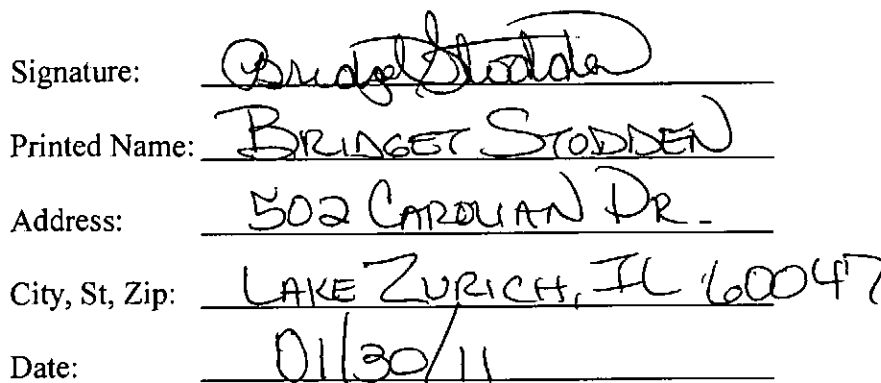 Signature: Bridget Stodden
Printed Name: BRIDGET STODDEN
Address: 502 CAROLIAN DR.
City, St, Zip: LAKE ZURICH, IL 60047
Date: 01/30/11